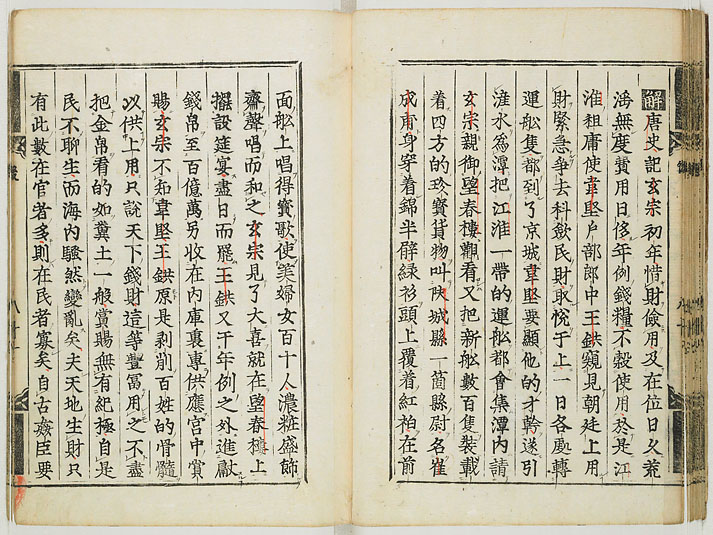 解唐史記玄宗初年惜財儉用及在位日久荒
淫無度費用日侈年例錢糧不彀使用於是江
淮租庸使韋堅户部郎中王鉷窺見朝廷上用
財緊急爭去科斂民財取悅于上一日各處轉
運船隻都到了京城韋堅要顯他的才幹遂引
滻水為潭把江淮一帶的運船都會集潭內請
玄宗親御望春樓觀看又把新船數百隻裝載
着四方的珍寶貨物叫陜城縣一箇縣尉名崔
成甫身穿着錦半臂緑衫頭上覆着紅袙在前
面船上唱得寳歌使美婦女百十人濃粧盛飾
齊聲唱而和之玄宗見了大喜就在望春樓上
擺設筵宴盡日而罷王鉷又于年例之外進獻
錢帛至百億萬另收在內庫裏專供應宮中賞
賜玄宗不知韋堅王鉷原是剥削百姓的骨髓
以供上用只說天下錢財這等豐富用之不盡
把金帛看的如糞土一般賞賜無有紀極自是
民不聊生而海內騷然變亂矣夫天地生財只
有此數在官者多則在民者寡矣自古姦臣要